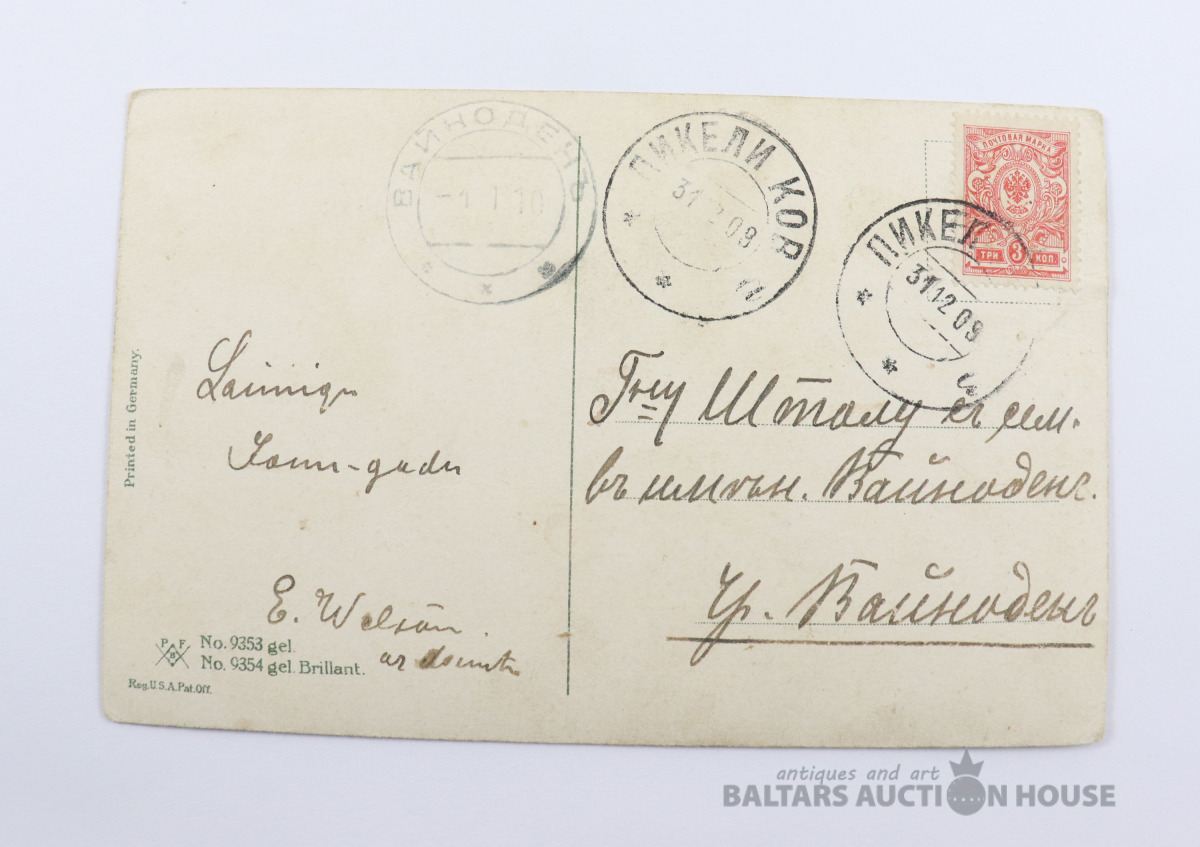 ВАЙНОДЕНЪ
-1.1.10
ПИКЕЛИ КОВ
31 12 09
ПИКЕЛ
31 12 09
ПОЧТОВАЯ МАРКА
ТРИ 3 КОП.
Printed in Germany.
Laimigu
Jaun-gadu
E. Welsōn.
ar
PFB
No. 9353 gel.
No. 9354 gel. Brillant.
Reg. U.S.A. Pat. Off.
Гну Шталу съ
въ имѣн. Вайноденъ.
Чр. Вайноденъ
antiques and art
BALTARS AUCTION HOUSE